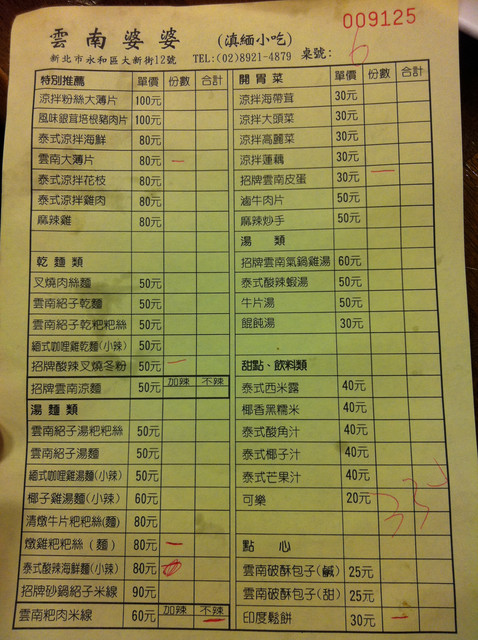 009125
雲南婆婆 (滇緬小吃)
新北市永和區大新街12號 TEL:(02)8921-4879 桌號: 6
特別推薦 單價 份數 合計
涼拌粉絲大薄片 100元
風味銀茸培根豬肉片 100元
泰式涼拌海鮮 80元
雲南大薄片 80元 一
泰式涼拌花枝 80元
泰式涼拌雞肉 80元
麻辣雞 80元
乾麵類
叉燒肉絲麵 50元
雲南紹子乾麵 50元
雲南紹子乾粑粑絲 50元
緬式咖哩雞乾麵(小辣) 50元
招牌酸辣叉燒冬粉 50元 一
招牌雲南涼麵 50元 加辣 不辣
湯麵類
雲南紹子湯粑粑絲 50元
雲南紹子湯麵 50元
緬式咖哩雞湯麵(小辣) 50元
椰子雞湯麵(小辣) 60元
清燉牛片粑粑絲(麵) 80元
燉雞粑粑絲(麵) 80元 一
泰式酸辣海鮮麵(小辣) 80元
招牌砂鍋紹子米線 90元
雲南粑肉米線 60元 加辣 不辣
開胃菜 單價 份數 合計
涼拌海帶茸 30元
涼拌大頭菜 30元
涼拌高麗菜 30元
涼拌蓮藕 30元
招牌雲南皮蛋 30元 一
滷牛肉片 50元
麻辣炒手 50元
湯類
招牌雲南氣鍋雞湯 60元
泰式酸辣蝦湯 50元
牛片湯 50元
餛飩湯 30元
甜點、飲料類
泰式西米露 40元
椰香黑糯米 40元
泰式酸角汁 40元
泰式椰子汁 40元
泰式芒果汁 40元
可樂 20元
點心
雲南破酥包子(鹹) 25元
雲南破酥包子(甜) 25元
印度鬆餅 30元 一